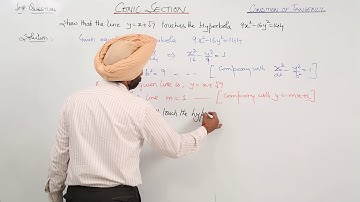 Imp Question
CONIC SECTION
CONDITION OF TANGENCY
Show that the line y = x + √7 touches the hyperbola 9x² - 16y² = 144
Solution:- Given equ 9x² - 16y² = 144
⇒ x²/16 - y²/9 = 1
b² = 9 - - - [Comparing with x²/a² - y²/b² = 1]
given line is, y = x + √7
line m = 1 [Comparing with y = mx + c]
touch the hyper